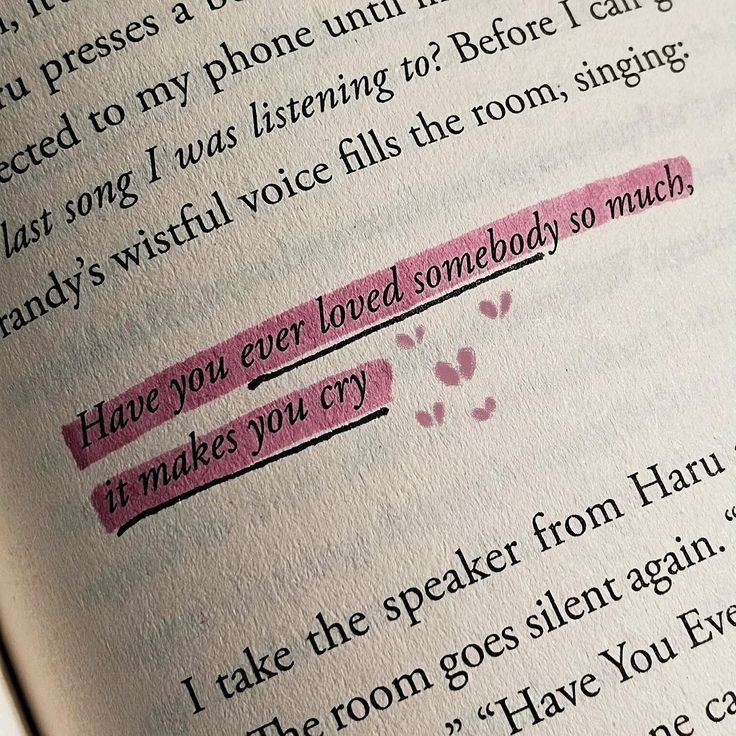 presses a
ected to my phone until
last song I was listening to? Before I can
randy's wistful voice fills the room, singing:
Have you ever loved somebody so much,
it makes you cry
I take the speaker from Haru
The room goes silent again. "
" "Have You Eve
ne ca